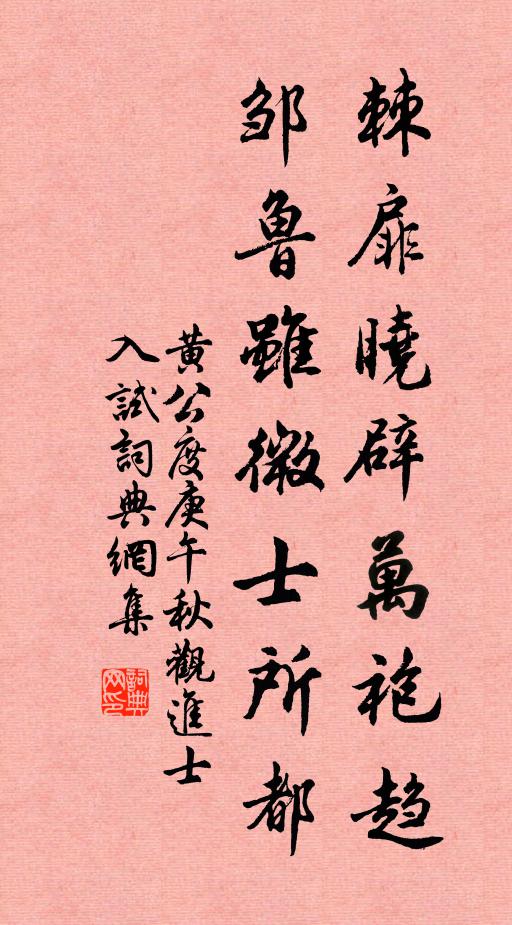 棘扉曉辟萬袍趨
鄒魯雖微士所都
黃公度庚午秋觀進士
入試詞典網集
詞典網印